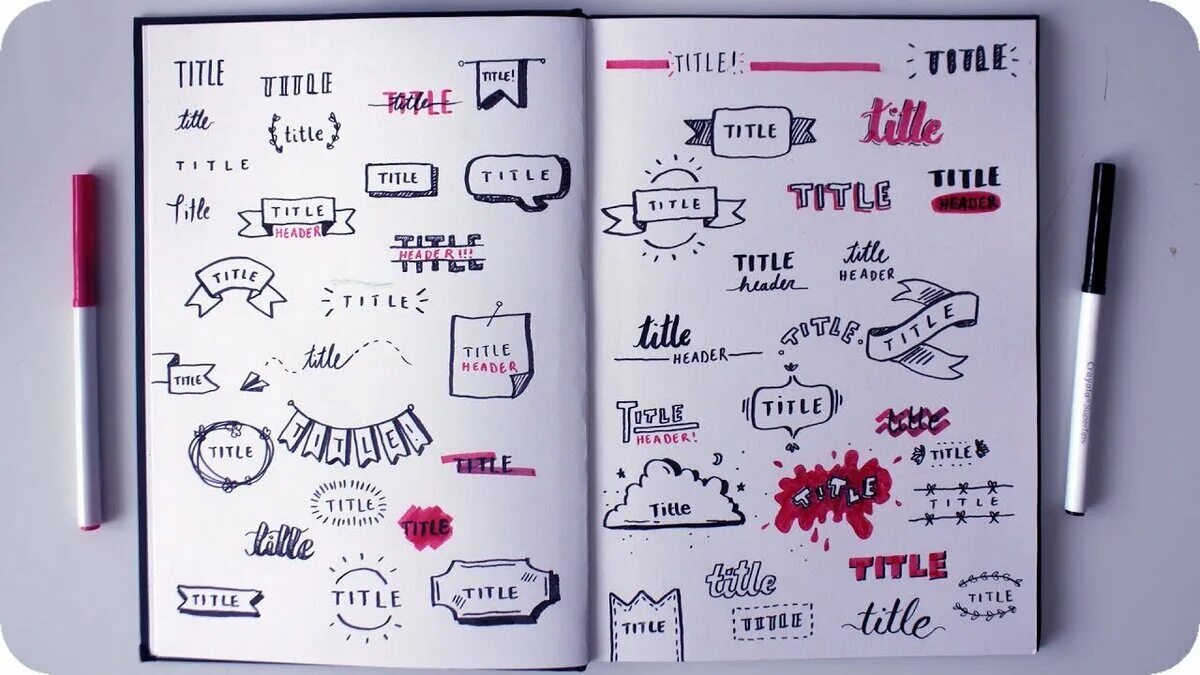 TITLE
TITLE
TITLE!
title
title
title
TITLE
TITLE
TITLE
TITLE
Title
TITLE
HEADER
TITLE
HEADER!!!
TITLE
TITLE
title
TITLE
HEADER
TITLE
TITLE
TITLE!
TITLE
TITLE
TITLE
title
TITLE
TITLE
TITLE
TITLE
TITLE!
TITLE
TITLE
title
TITLE
TITLE
TITLE
HEADER
TITLE
header
title
HEADER
TITLE
title
HEADER
TITLE
TITLE
TITLE
HEADER!
title
TITLE
Title
TITLE
TITLE
title
TITLE
TITLE
TITLE
TITLE
title
Crayola